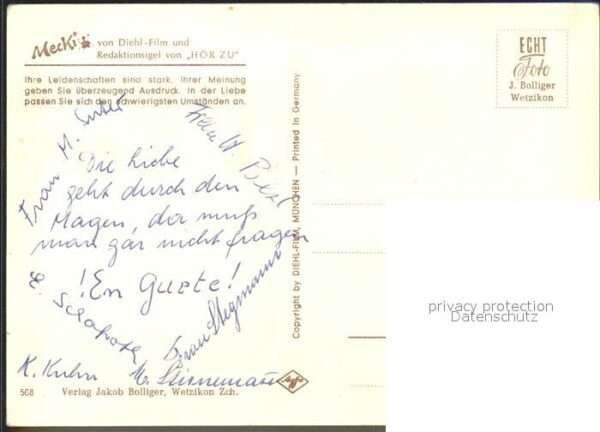 Mecki
von Diehl-Film und
Redaktionsigel von „HÖR ZU"
Ihre Leidenschaften sind stark. Ihrer Meinung
geben Sie überzeugend Ausdruck. In der Liebe
passen Sie sich den schwierigsten Umständen an.
ECHT
Foto
J. Bolliger
Wetzikon
Frau M.
Die Liebe
geht durch den
Magen, da muß
man gar nicht fragen
!En Guete!
K. Kuhn
Copyright by DIEHL-FILM, MÜNCHEN — Printed in Germany
508
Verlag Jakob Bolliger, Wetzikon Zch.
Agfa
privacy protection
Datenschutz